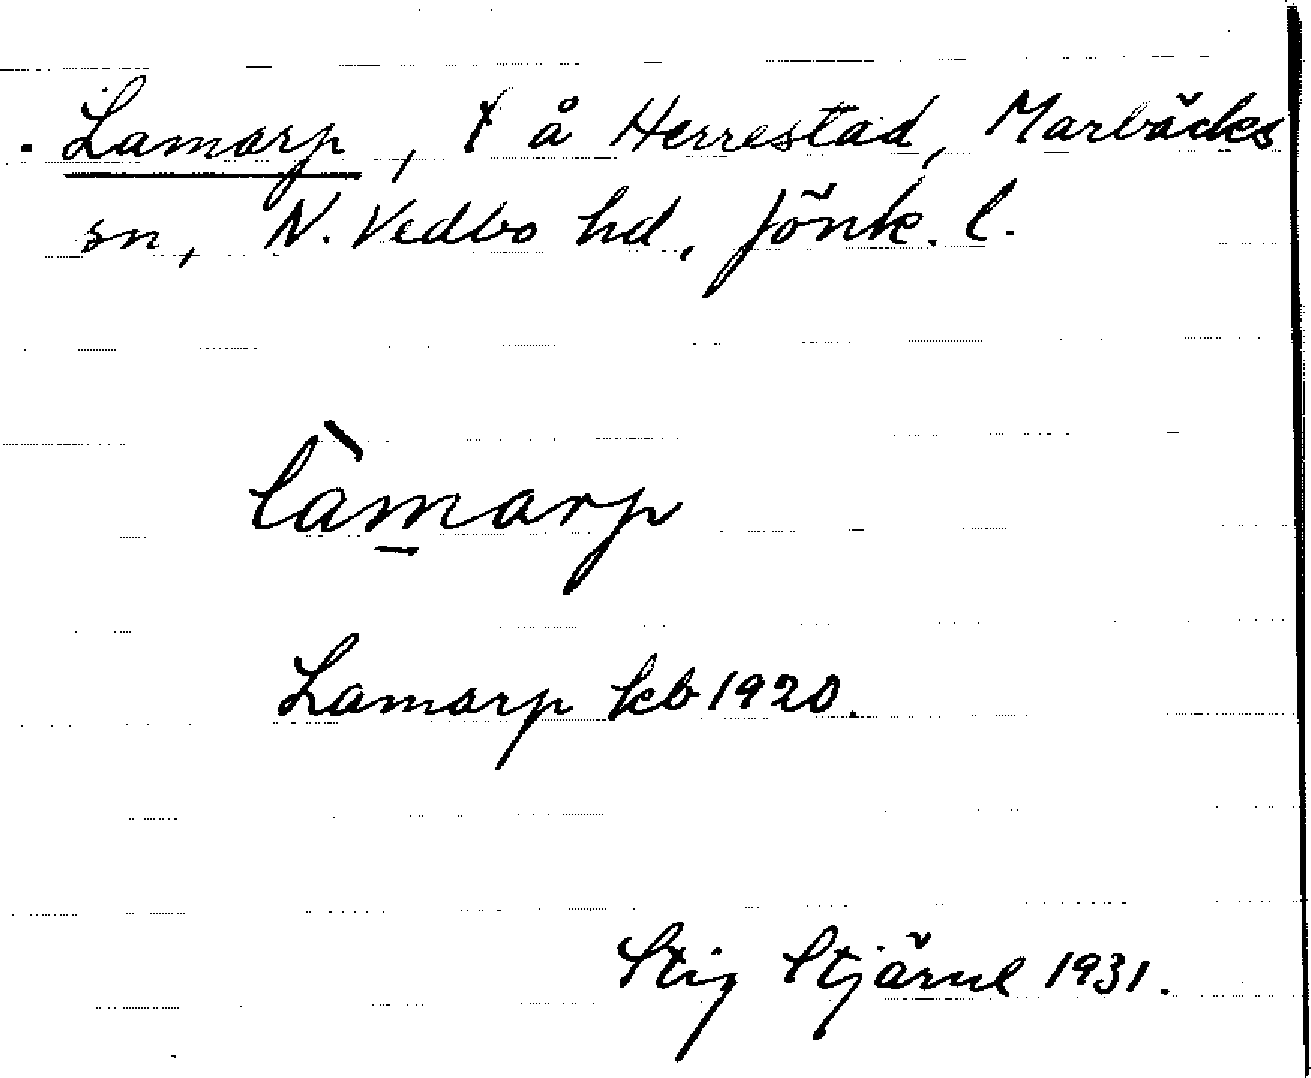 . Lamarp, t å Herrestad, Marbäcks
sn, N. Vedbo hd, Jönk. l.
làmarp
Lamarp kb 1920.
Stig Stjärne 1931.